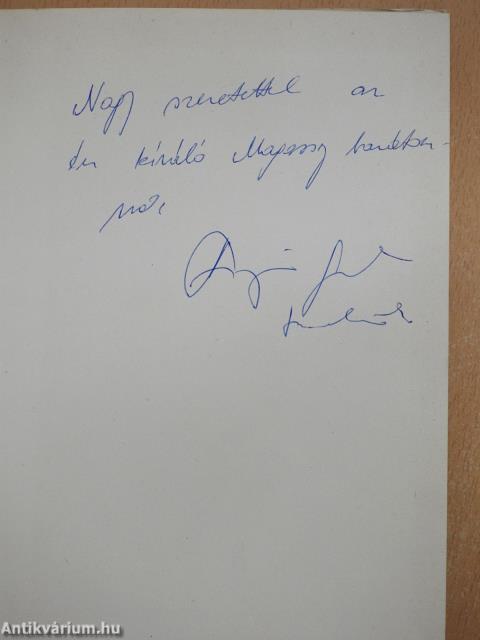 Nagy szeretettel az
én kiváló Magassy barátom-
nak,
Antikvárium.hu